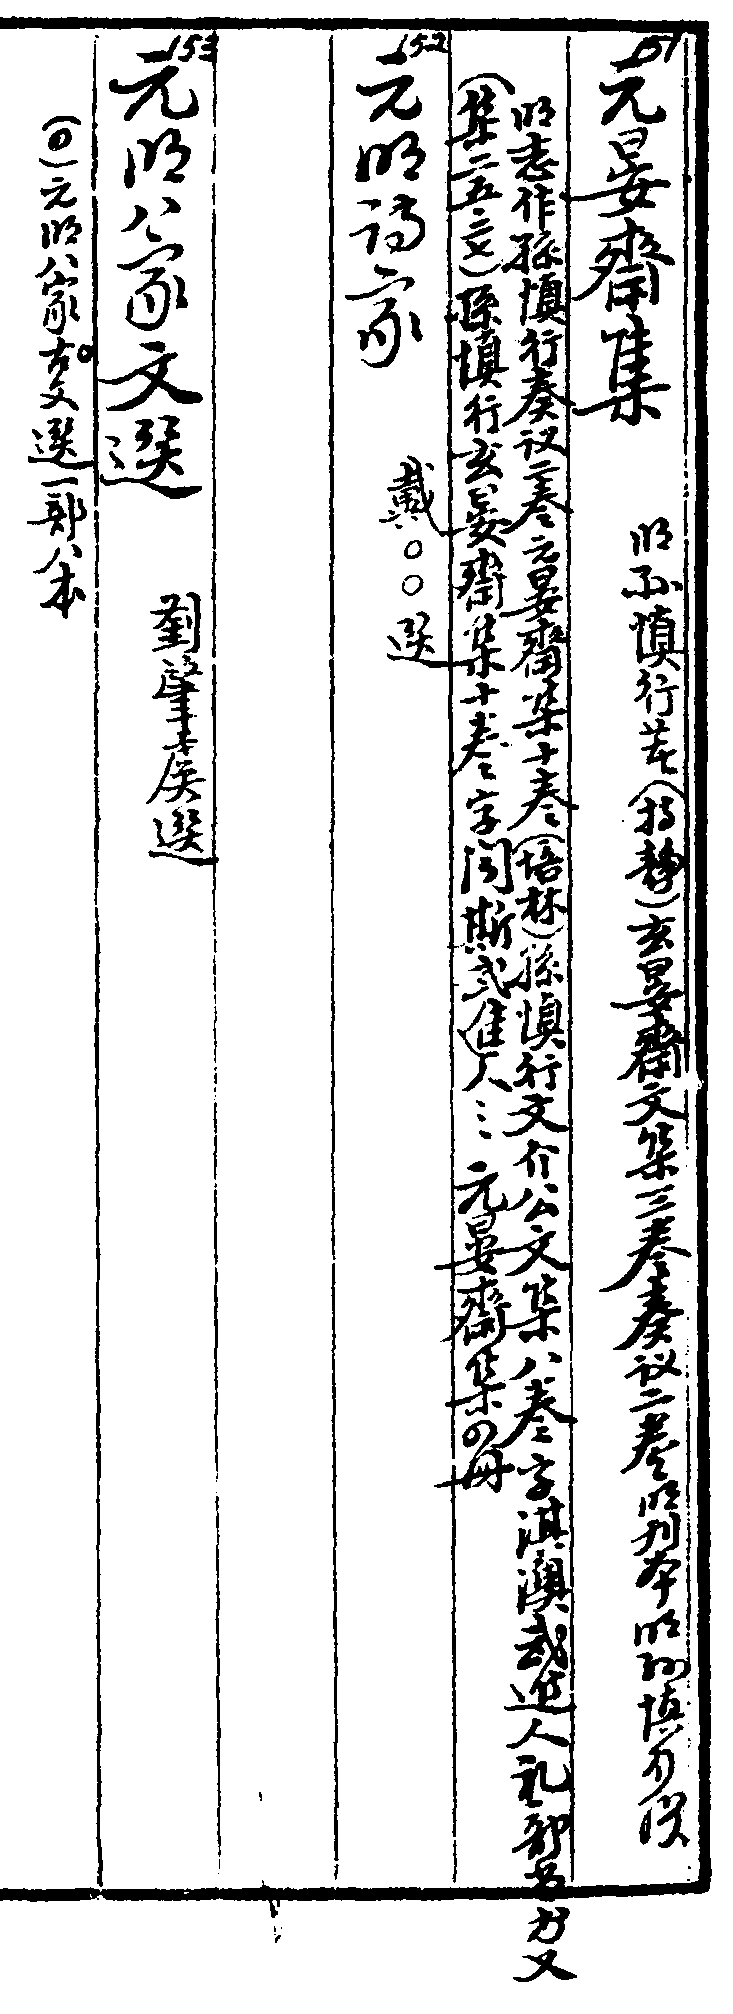 151
元晏齋集 明孙慎行芺(持静)玄晏齋文集三卷奏议二卷明刊本明孙慎行撰
明志作孫慎行奏议二卷元晏齋集十卷(培林)孫慎行文介公文集八卷字淇澳武進人礼部尚书又
(集二五三文)孫慎行玄晏齋集十卷字聞斯武進人… 元晏齋集四册
152
元明詩家 戴○○選
153
元明八家文選 劉肇侯選
(日)元明八家古文選一部八本